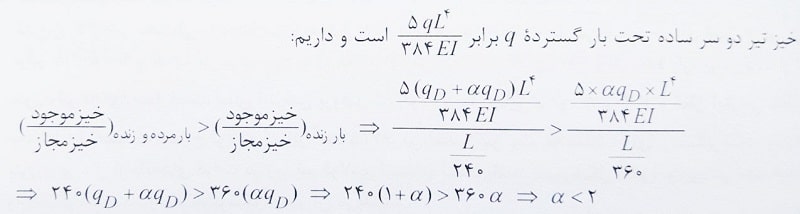 خیز تیر دو سر ساده تحت بار گستردهٔ q برابر ۵qL^۴/۳۸۴EI است و داریم:
(خیزموجود/خیزمجاز) بارمرده و زنده > (خیزموجود/خیزمجاز) بار زنده ⇒ (۵(q_D + αq_D)L^۴/۳۸۴EI)/(L/۲۴۰) > (۵×αq_D×L^۴/۳۸۴EI)/(L/۳۶۰)
⇒ ۲۴۰(q_D + αq_D) > ۳۶۰(αq_D) ⇒ ۲۴۰(۱+α) > ۳۶۰α ⇒ α < ۲